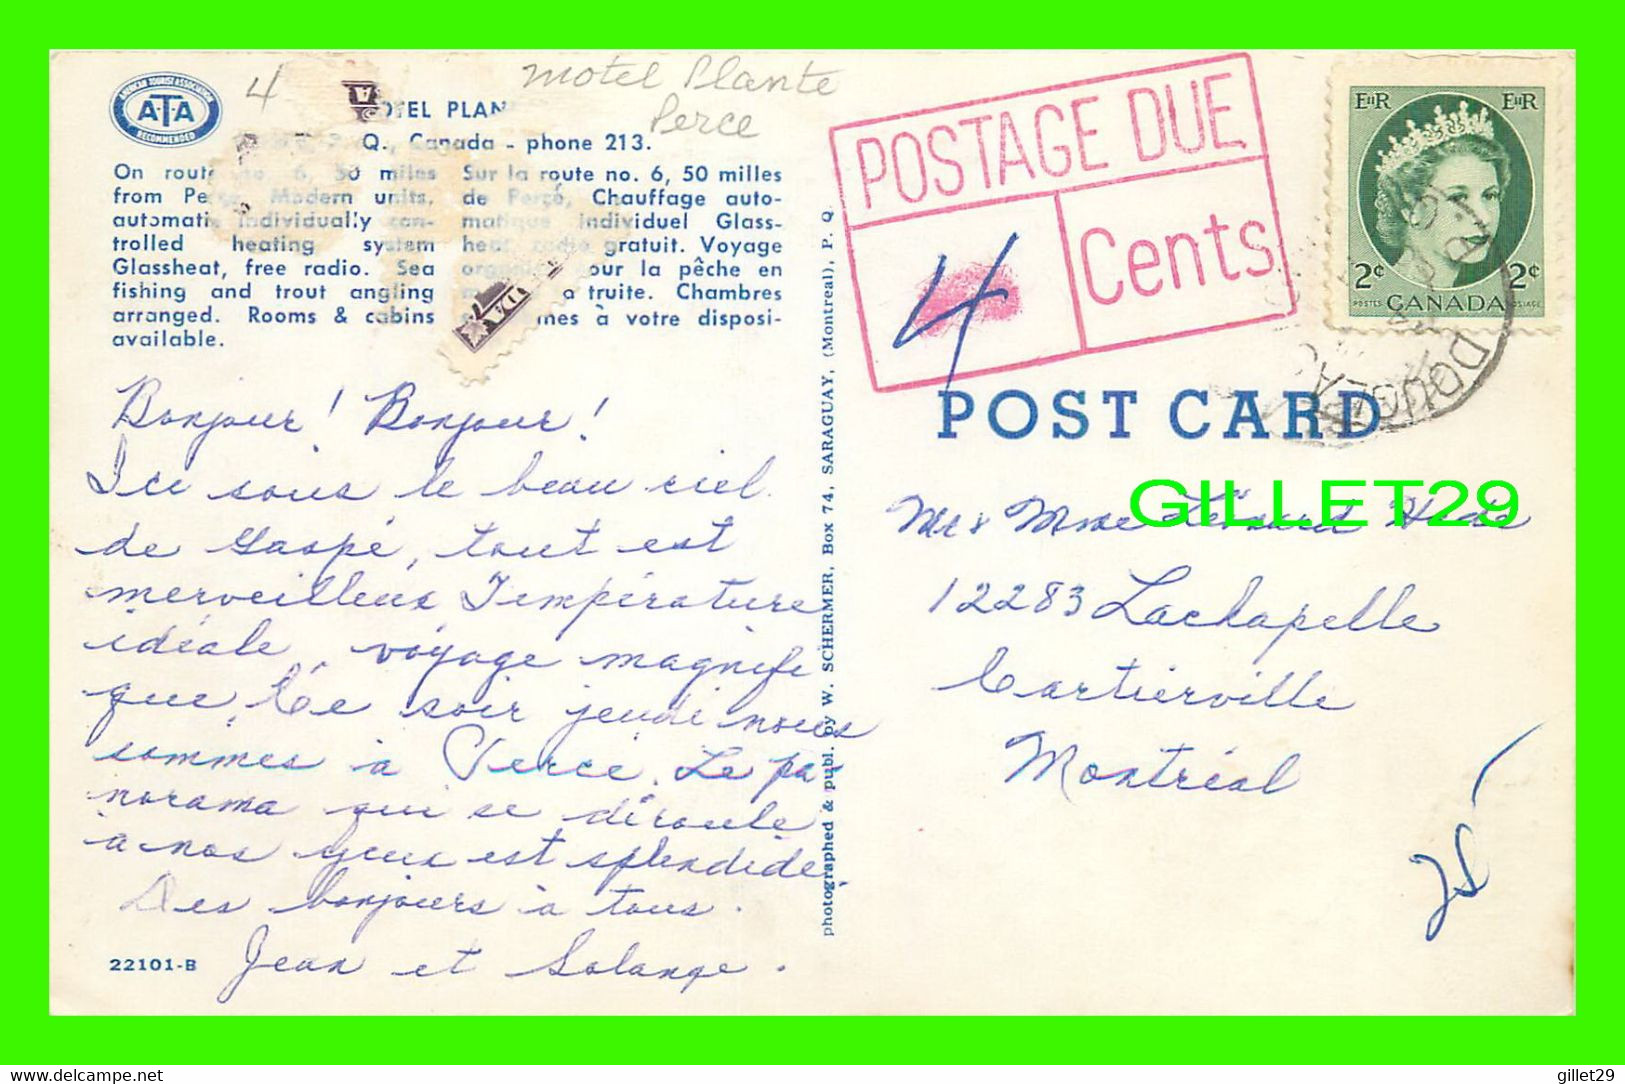 AMERICAN TOURIST ASSOCIATION
A·T·A
RECOMMENDED
4
Motel Plante
Perce
OTEL PLAN
Q., Canada - phone 213.
On route no. 6, 50 miles
from Modern units,
automatic individually con-
trolled heating system
Glassheat, free radio. Sea
fishing and trout angling
arranged. Rooms & cabins
available.
Sur la route no. 6, 50 milles
de Percé, Chauffage auto-
matique individuel Glass-
heat, radio gratuit. Voyage
our la pêche en
a truite. Chambres
à votre disposi-
Bonjour! Bonjour!
Ici sous le beau ciel
de Gaspé, tout est
merveilleux Température
idéale, voyage magnifi
que. Ce soir jeudi nous
sommes à Percé. Le pa-
norama qui se déroule
à nos yeux est splendide
Des bonjours à tous.
Jean et Solange.
22101-B
photographed & publ. by W. SCHERMER, Box 74, SARAGUAY, (Montreal), P. Q.
POSTAGE DUE
4
Cents
EIIR EIIR
2¢ 2¢
POSTES CANADA POSTAGE
POST CARD
GILLET29
Mr & Mme Léonard
12283 Lachapelle
Cartierville
Montréal
gillet29